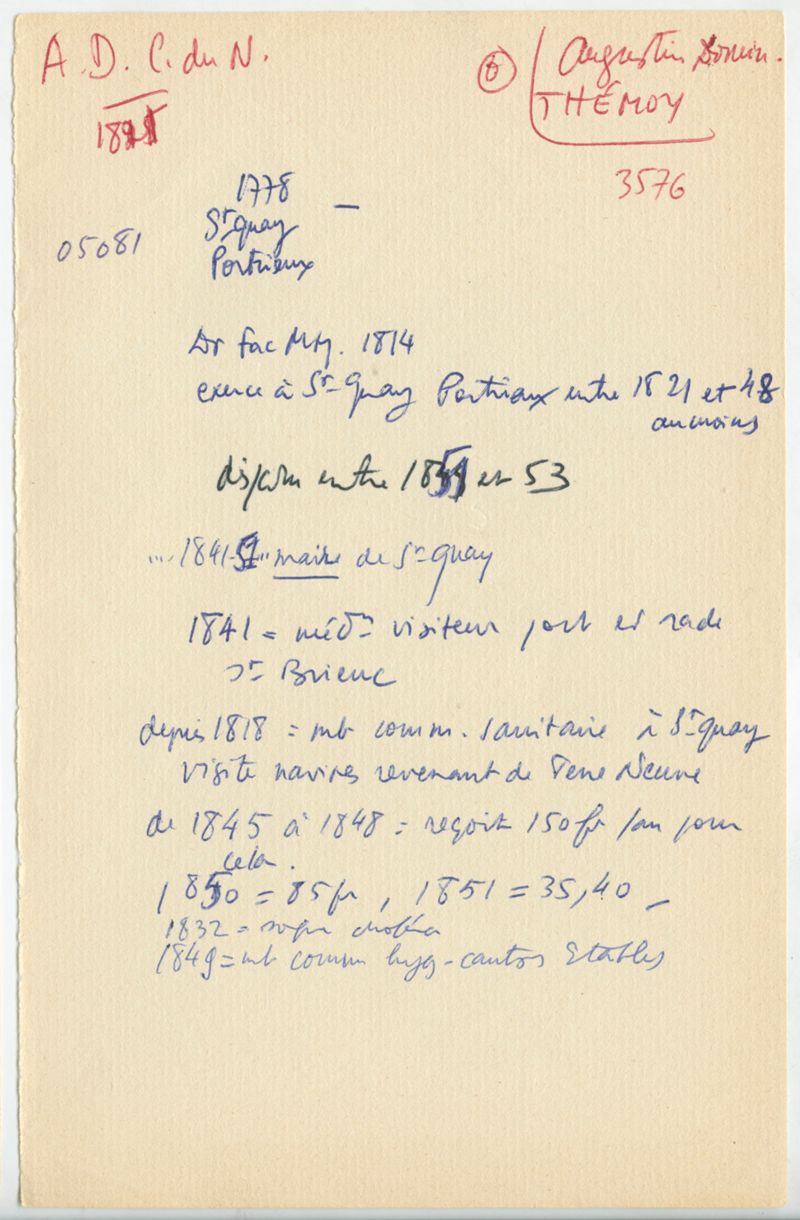 A.D. C. du N.
6
Augustin Domin.
THÉMOY
3576
1778 _
05081
St quay
Portrieux
Dr Fac . 1814
exerce à St-Quay Portrieux entre 1821 et 48
au moins
entre 1851 et 53
.... 1841-52 .. maire de St-Quay
1841 = médn visiteur port et rade
St Brieuc
depuis 1818 = mb comm. sanitaire à St-quay
visite navires revenant de Terre Neuve
de 1845 à 1848 = reçoit 150 fr /an pour
cela.
1850 = 85 fr, 1851 = 35,40 _
1832 = choléra
1849 = mb comm hyg-canton Etables